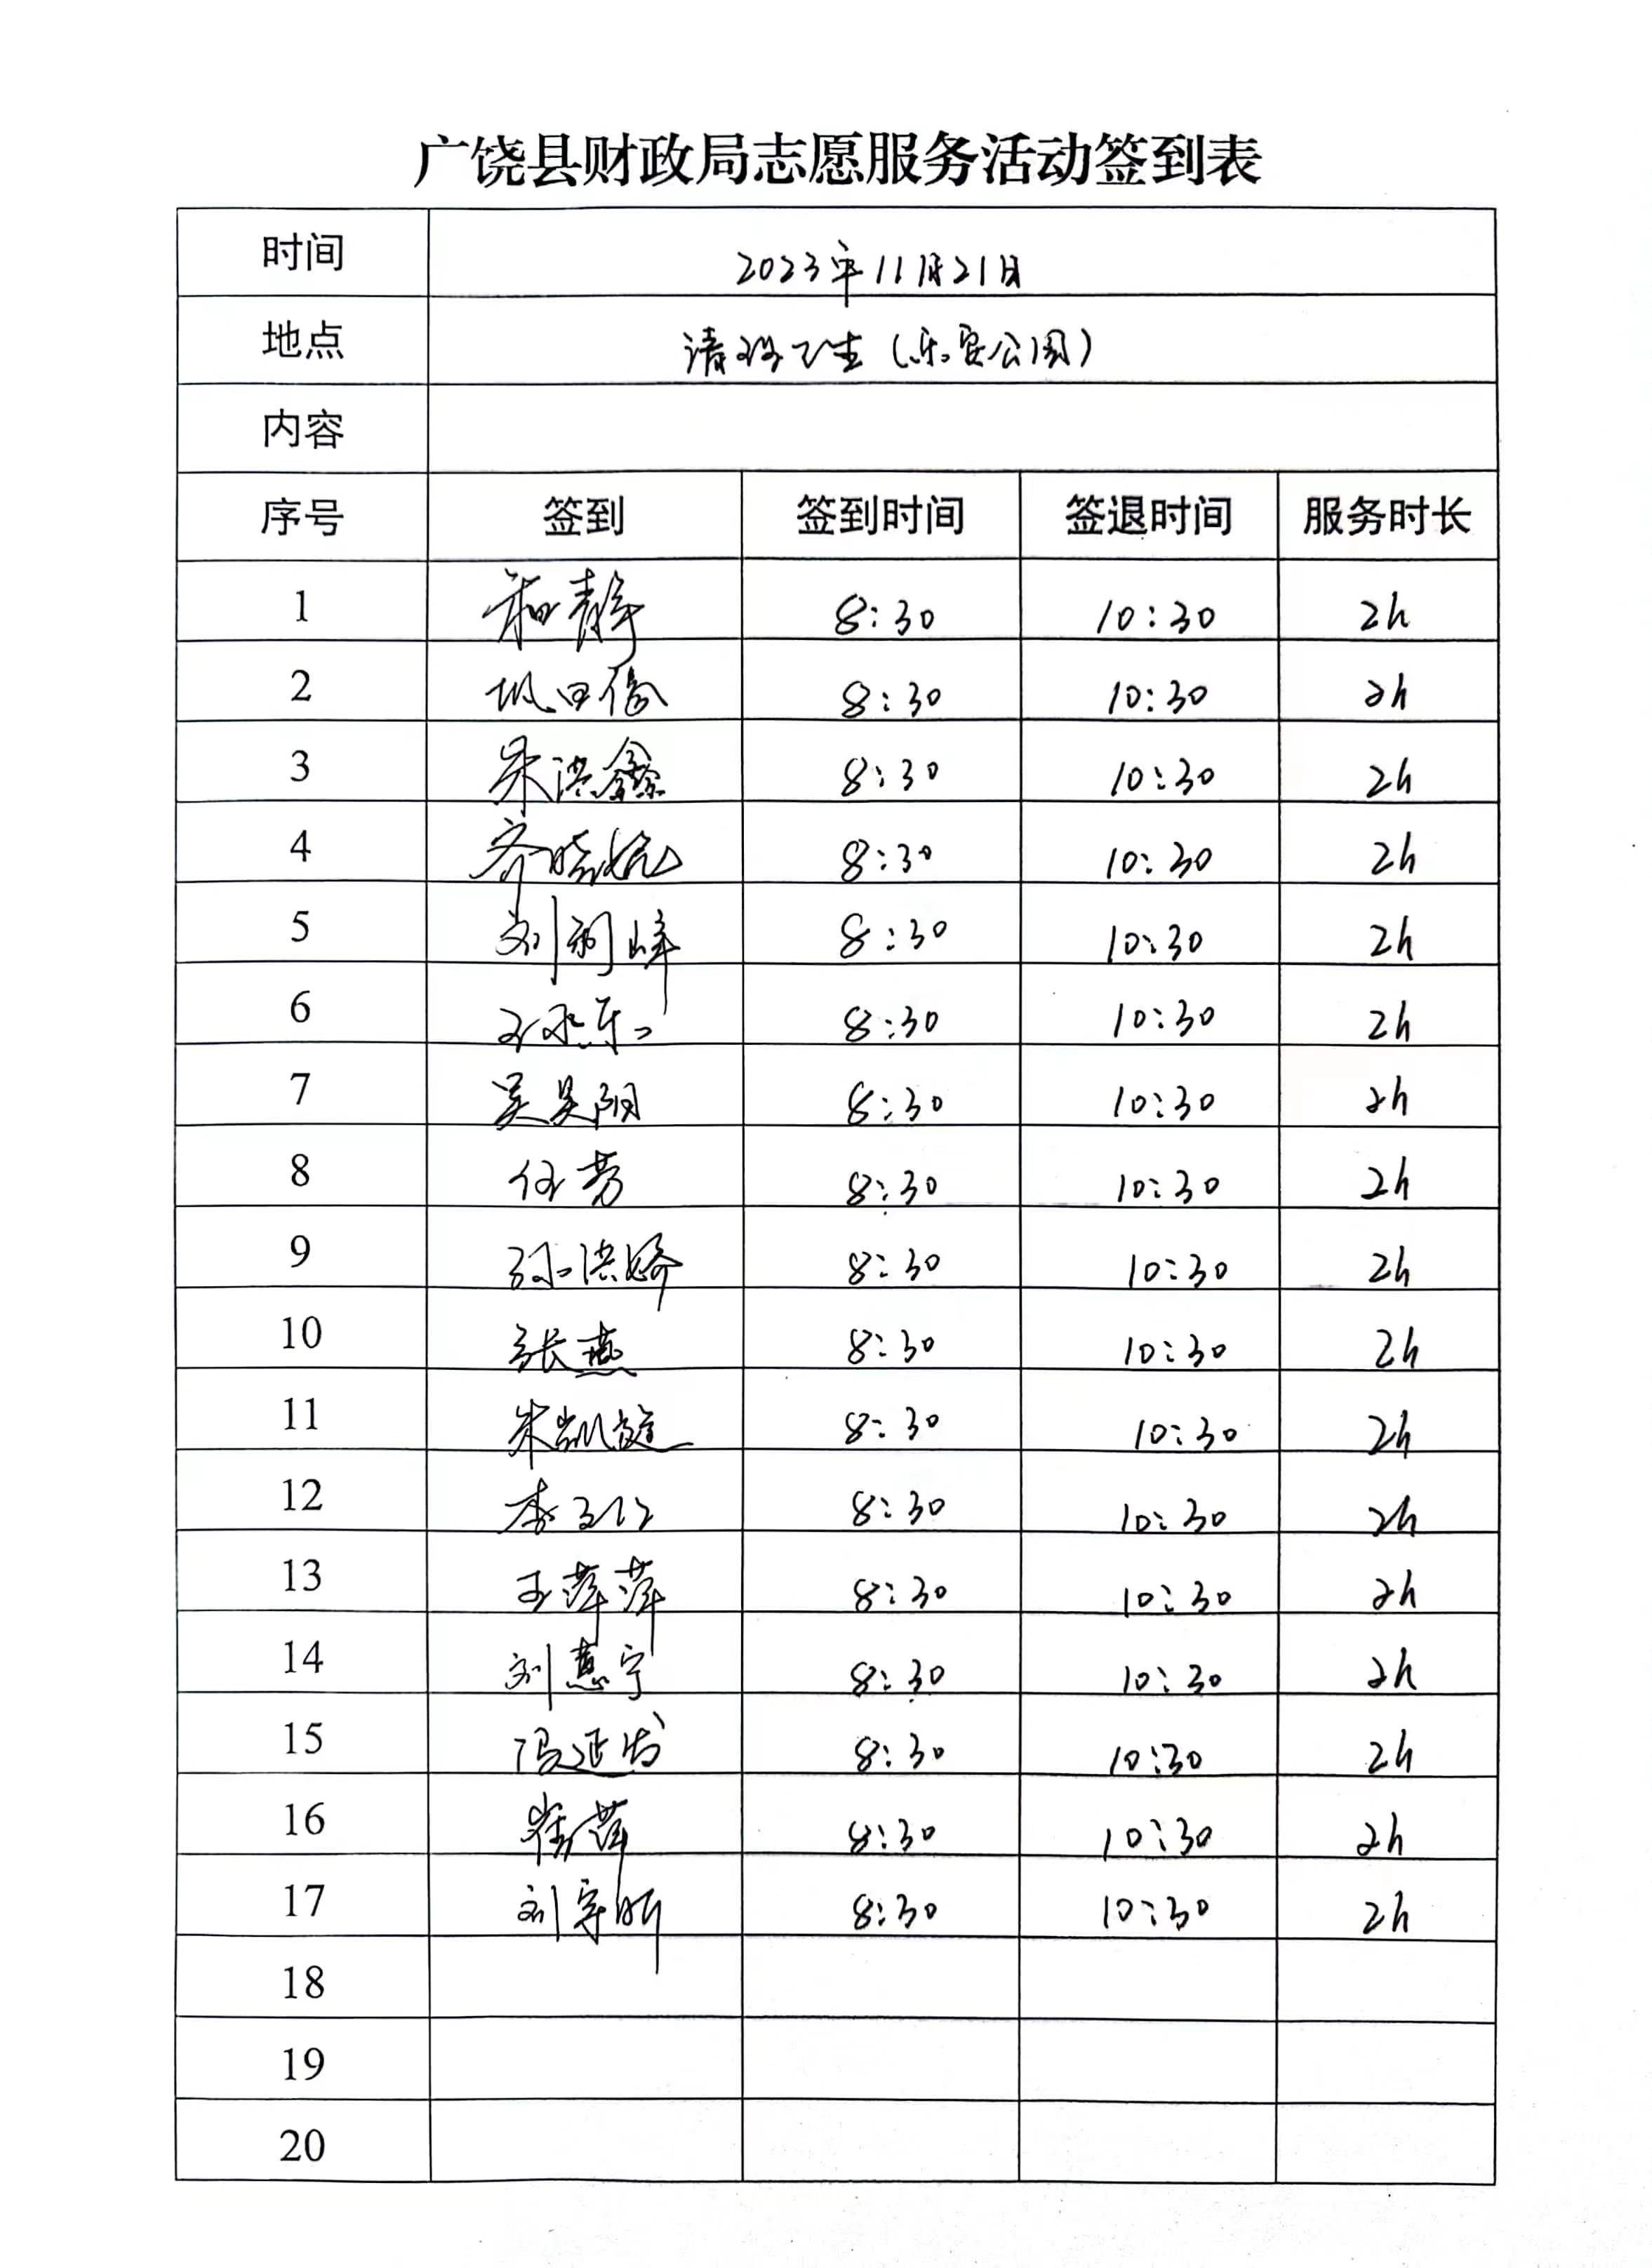 广饶县财政局志愿服务活动签到表
时间 2023年11月21日
地点 清理卫生(乐安公园)
内容
序号 签到 签到时间 签退时间 服务时长
1 静 8:30 10:30 2h
2 8:30 10:30 2h
3 朱洪鑫 8:30 10:30 2h
4 齐晓婉 8:30 10:30 2h
5 刘利峰 8:30 10:30 2h
6 8:30 10:30 2h
7 吴昊阳 8:30 10:30 2h
8 任芳 8:30 10:30 2h
9 孙洪娇 8:30 10:30 2h
10 张燕 8:30 10:30 2h
11 朱凯旋 8:30 10:30 2h
12 李 8:30 10:30 2h
13 王萍萍 8:30 10:30 2h
14 刘慧宁 8:30 10:30 2h
15 冯延 8:30 10:30 2h
16 崔萍 8:30 10:30 2h
17 刘宇昕 8:30 10:30 2h
18
19
20